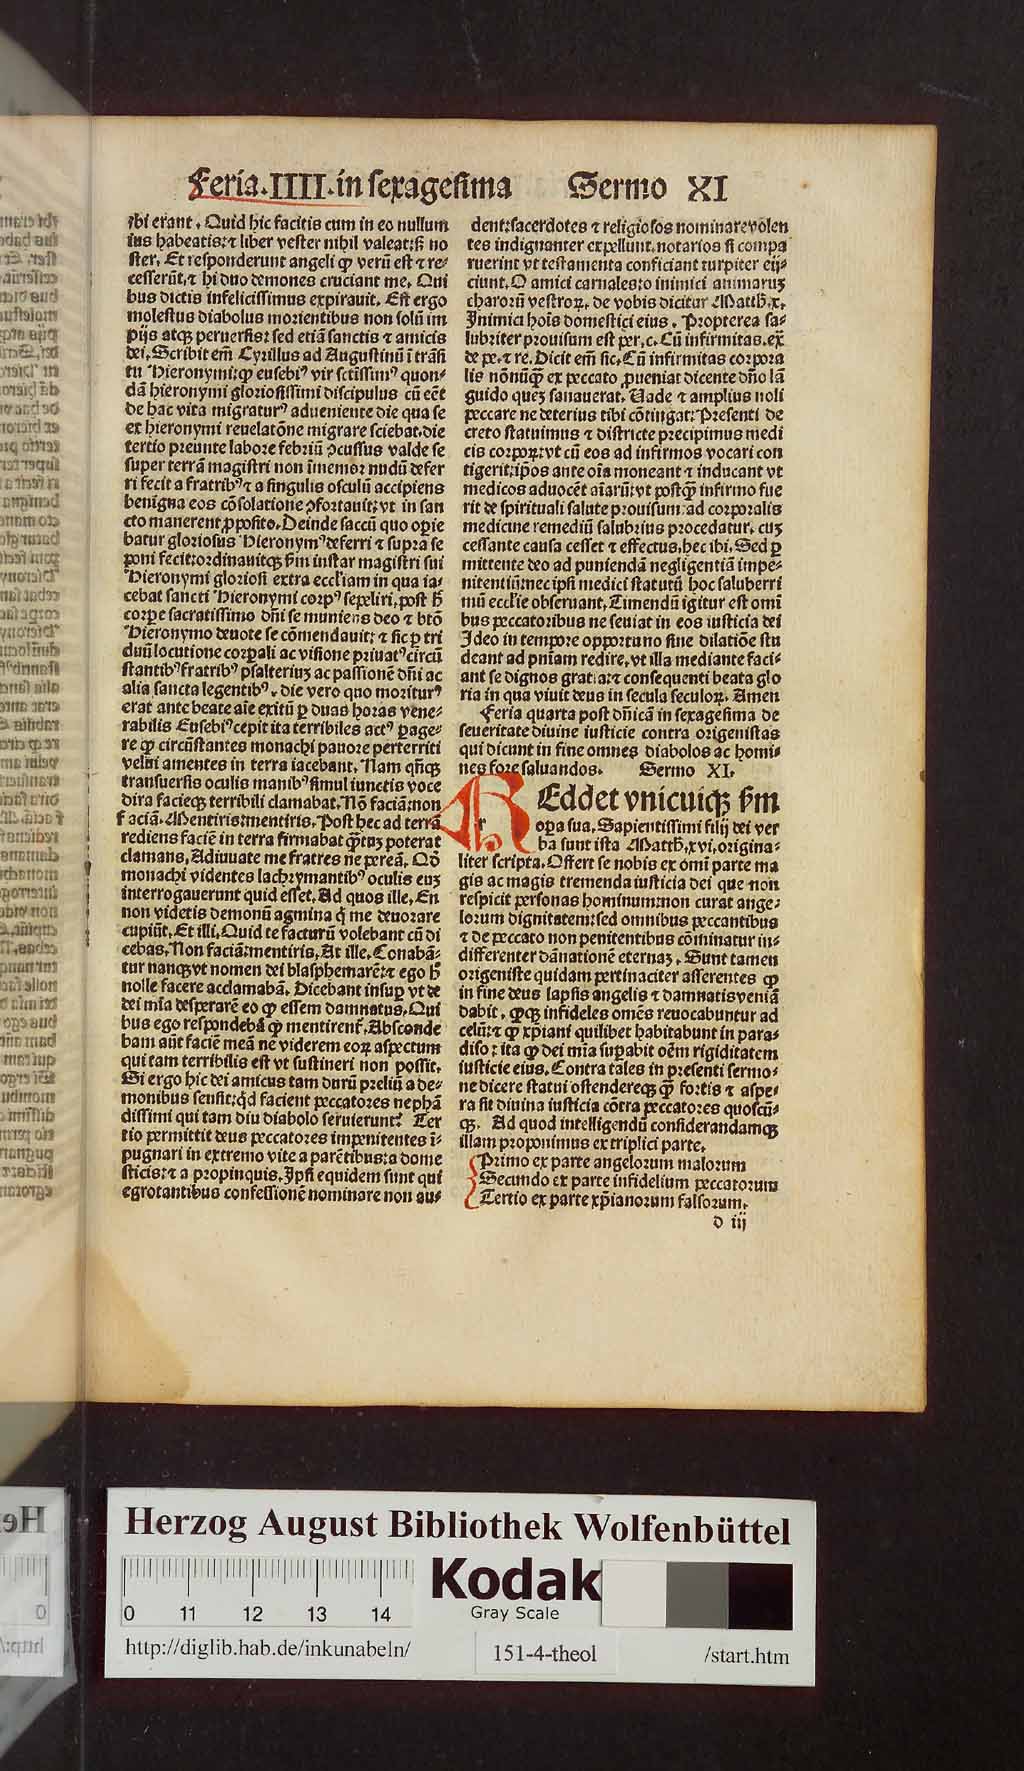 Feria.IIII.in sexagesima Sermo XI
ibi erant. Quid hic facitis cum in eo nullum
ius habeatis: ⁊ liber vester nihil valeat: sꝫ no
ster. Et responderunt angeli ꝙ verū est ⁊ re-
cesserūt, ⁊ hi duo demones cruciant me. Qui
bus dictis infelicissimus expirauit. Est ergo
molestus diabolus morientibus non solū im
pijs atqꝫ peruersis: sed etiā sanctis ⁊ amicis
dei. Scribit em̄ Cyrillus ad Augustinū ī trāsi
tu Hieronymi: ꝙ eusebiꝰ vir sctissimꝰ quon-
dā hieronymi gloriosissimi discipulus cū eēt
de hac vita migraturꝰ adueniente die qua se
ex hieronymi reuelatōne migrare sciebat. die
tertio preunte labore febriū ꝓcussus valde se
super terrā magistri non īmemor nudū defer
ri fecit a fratribꝰ ⁊ a singulis osculū accipiens
benigna eos cōsolatione ꝯfortauit: vt in san
cto manerent ꝓposito. Deinde saccū quo oꝑie
batur gloriosus Hieronymꝰ deferri ⁊ supra se
poni fecit: ordinauitqꝫ ẜm instar magistri sui
Hieronymi gloriosi extra eccl'iam in qua ia-
cebat sancti Hieronymi corpꝰ sepeliri. post h̄
corpe sacratissimo dn̄i se muniens deo ⁊ btō
Hieronymo deuote se cōmendauit: ⁊ sic ꝑ tri
duū locutione corꝑali ac visione priuatꝰ circū
stantibꝰ fratribꝰ psalteriuꝫ ac passionē dn̄i ac
alia sancta legentibꝰ. die vero quo moriturꝰ
erat ante beate aīe exitū ꝑ duas horas vene-
rabilis Eusebiꝰ cepit ita terribiles actꝰ ꝑage-
re ꝙ circūstantes monachi pauore perterriti
velut amentes in terra iacebant. Nam qn̄qꝫ
transuersis oculis manibꝰ simul iunctis voce
dira facieqꝫ terribili clamabat. Nō faciā: non
faciā. Mentiris: mentiris. Post hec ad terrā
rediens faciē in terra firmabat q̄tuꝫ poterat
clamans. Adiuuate me fratres ne pereā. Qō
monachi videntes lachrymantibꝰ oculis euꝫ
interrogauerunt quid esset. Ad quos ille. En
non videtis demonū agmina q̄ me deuorare
cupiūt. Et illi. Quid te facturū volebant cū di
cebas. Non faciā: mentiris. At ille. Conabā-
tur nanqꝫ vt nomen dei blasphemarē: ⁊ ego h̄
nolle facere acclamabā. Dicebant insuꝑ vt de
dei mīa desperarē eo ꝙ essem damnatus. Qui
bus ego respondebā ꝙ mentirent̄. Absconde
bam aūt faciē meā ne viderem eoꝝ aspectum
qui tam terribilis est vt sustineri non possit.
Si ergo hic dei amicus tam durū preliū a de-
monibus sensit: qd̄ facient peccatores nephā
dissimi qui tam diu diabolo seruierunt? Ter
tio permittit deus peccatores impenitentes ī-
pugnari in extremo vite a parētibus: a dome
sticis: ⁊ a propinquis. Ipsi equidem sunt qui
egrotantibus confessionē nominare non au-
dent: sacerdotes ⁊ religiosos nominare volen
tes indignanter expellunt. notarios si compa
ruerint vt testamenta conficiant turpiter eij-
ciunt. O amici carnales: o inimici animaruꝫ
charorū vestroꝝ, de vobis dicitur Matth̄. x.
Inimici hoīs domestici eius. Propterea sa-
lubriter prouisum est per. c. Cū infirmitas. ex̄
de pe. ⁊ re. Dicit em̄ sic. Cū infirmitas corpora
lis nōnūq̄ ex peccato ꝓueniat dicente dn̄o lā
guido queꝫ sanauerat. Uade ⁊ amplius noli
peccare ne deterius tibi cōtingat: Presenti de
creto statuimus ⁊ districte precipimus medi
cis corpoꝝ: vt cū eos ad infirmos vocari con
tigerit: ip̄os ante oīa moneant ⁊ inducant vt
medicos aduocēt aīarū: vt postq̄ infirmo fue
rit de spirituali salute prouisum: ad corporalis
medicine remediū salubrius procedatur. cuꝫ
cessante causa cesset ⁊ effectus. hec ibi. Sed ꝑ
mittente deo ad puniendā negligentiā impe-
nitentiū: nec ipsi medici statutū hoc saluberri
mū eccl'ie obseruant. Timendū igitur est omī
bus peccatoribus ne seuiat in eos iusticia dei
Ideo in tempore opportuno sine dilatiōe stu
deant ad pn̄iam redire, vt illa mediante faci-
ant se dignos gratia: ⁊ consequenti beata glo
ria in qua viuit deus in secula seculoꝝ. Amen
Feria quarta post dn̄icā in sexagesima de
seueritate diuine iusticie contra origenistas
qui dicunt in fine omnes diabolos ac homi-
nes fore saluandos. Sermo XI.
REddet vnicuiqꝫ ẜm
r opa sua. Sapientissimi filij dei ver
ba sunt ista Matth̄. xvi. origina-
liter scripta. Offert se nobis ex omī parte ma
gis ac magis tremenda iusticia dei que non
respicit personas hominum: non curat ange-
lorum dignitatem: sed omnibus peccantibus
⁊ de peccato non penitentibus cōminatur in-
differenter dānationē eternaꝫ. Sunt tamen
origeniste quidam pertinaciter asserentes ꝙ
in fine deus lapsis angelis ⁊ damnatis veniā
dabit. ꝙqꝫ infideles omēs reuocabuntur ad
celū: ⁊ ꝙ xp̄iani quilibet habitabunt in para-
diso: ita ꝙ dei mīa suꝑabit oēm rigiditatem
iusticie eius. Contra tales in presenti sermo-
ne dicere statui ostendereqꝫ ꝙ fortis ⁊ aspe-
ra sit diuina iusticia cōtra peccatores quoscū-
qꝫ. Ad quod intelligendū considerandamqꝫ
illam proponimus ex triplici parte.
Primo ex parte angelorum malorum
Secundo ex parte infidelium peccatorum
Tertio ex parte xp̄ianorum falsorum.
d iij
Herzog August Bibliothek Wolfenbüttel
Kodak
Gray Scale
0 11 12 13 14
http://diglib.hab.de/inkunabeln/ 151-4-theol /start.htm